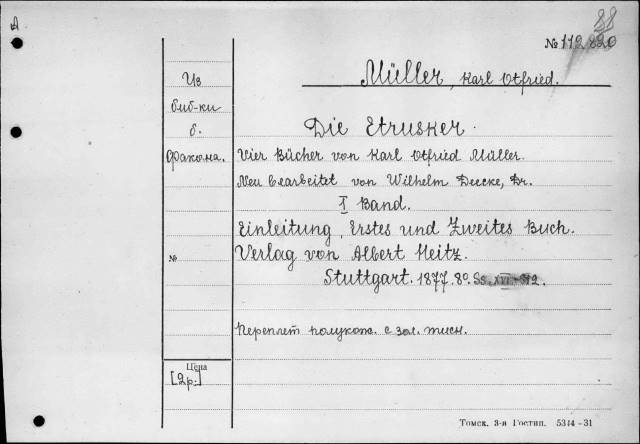 А
88
№ 112820
Müller, Karl Otfried.
Из
биб-ки
б.
Фракона.
Die Etrusker.
Vier Bücher von Karl Otfried Müller.
Neu bearbeitet von Wilhelm Deecke, Dr.
I Band.
Einleitung, Erstes und Zweites Buch.
№
Verlag von Albert Heitz.
Stuttgart. 1877. 8º. Ss. XVI
Переплет полукож. с зол. тисн.
Цена
[2р.]
Томск. 3-я Гостип. 5344-31